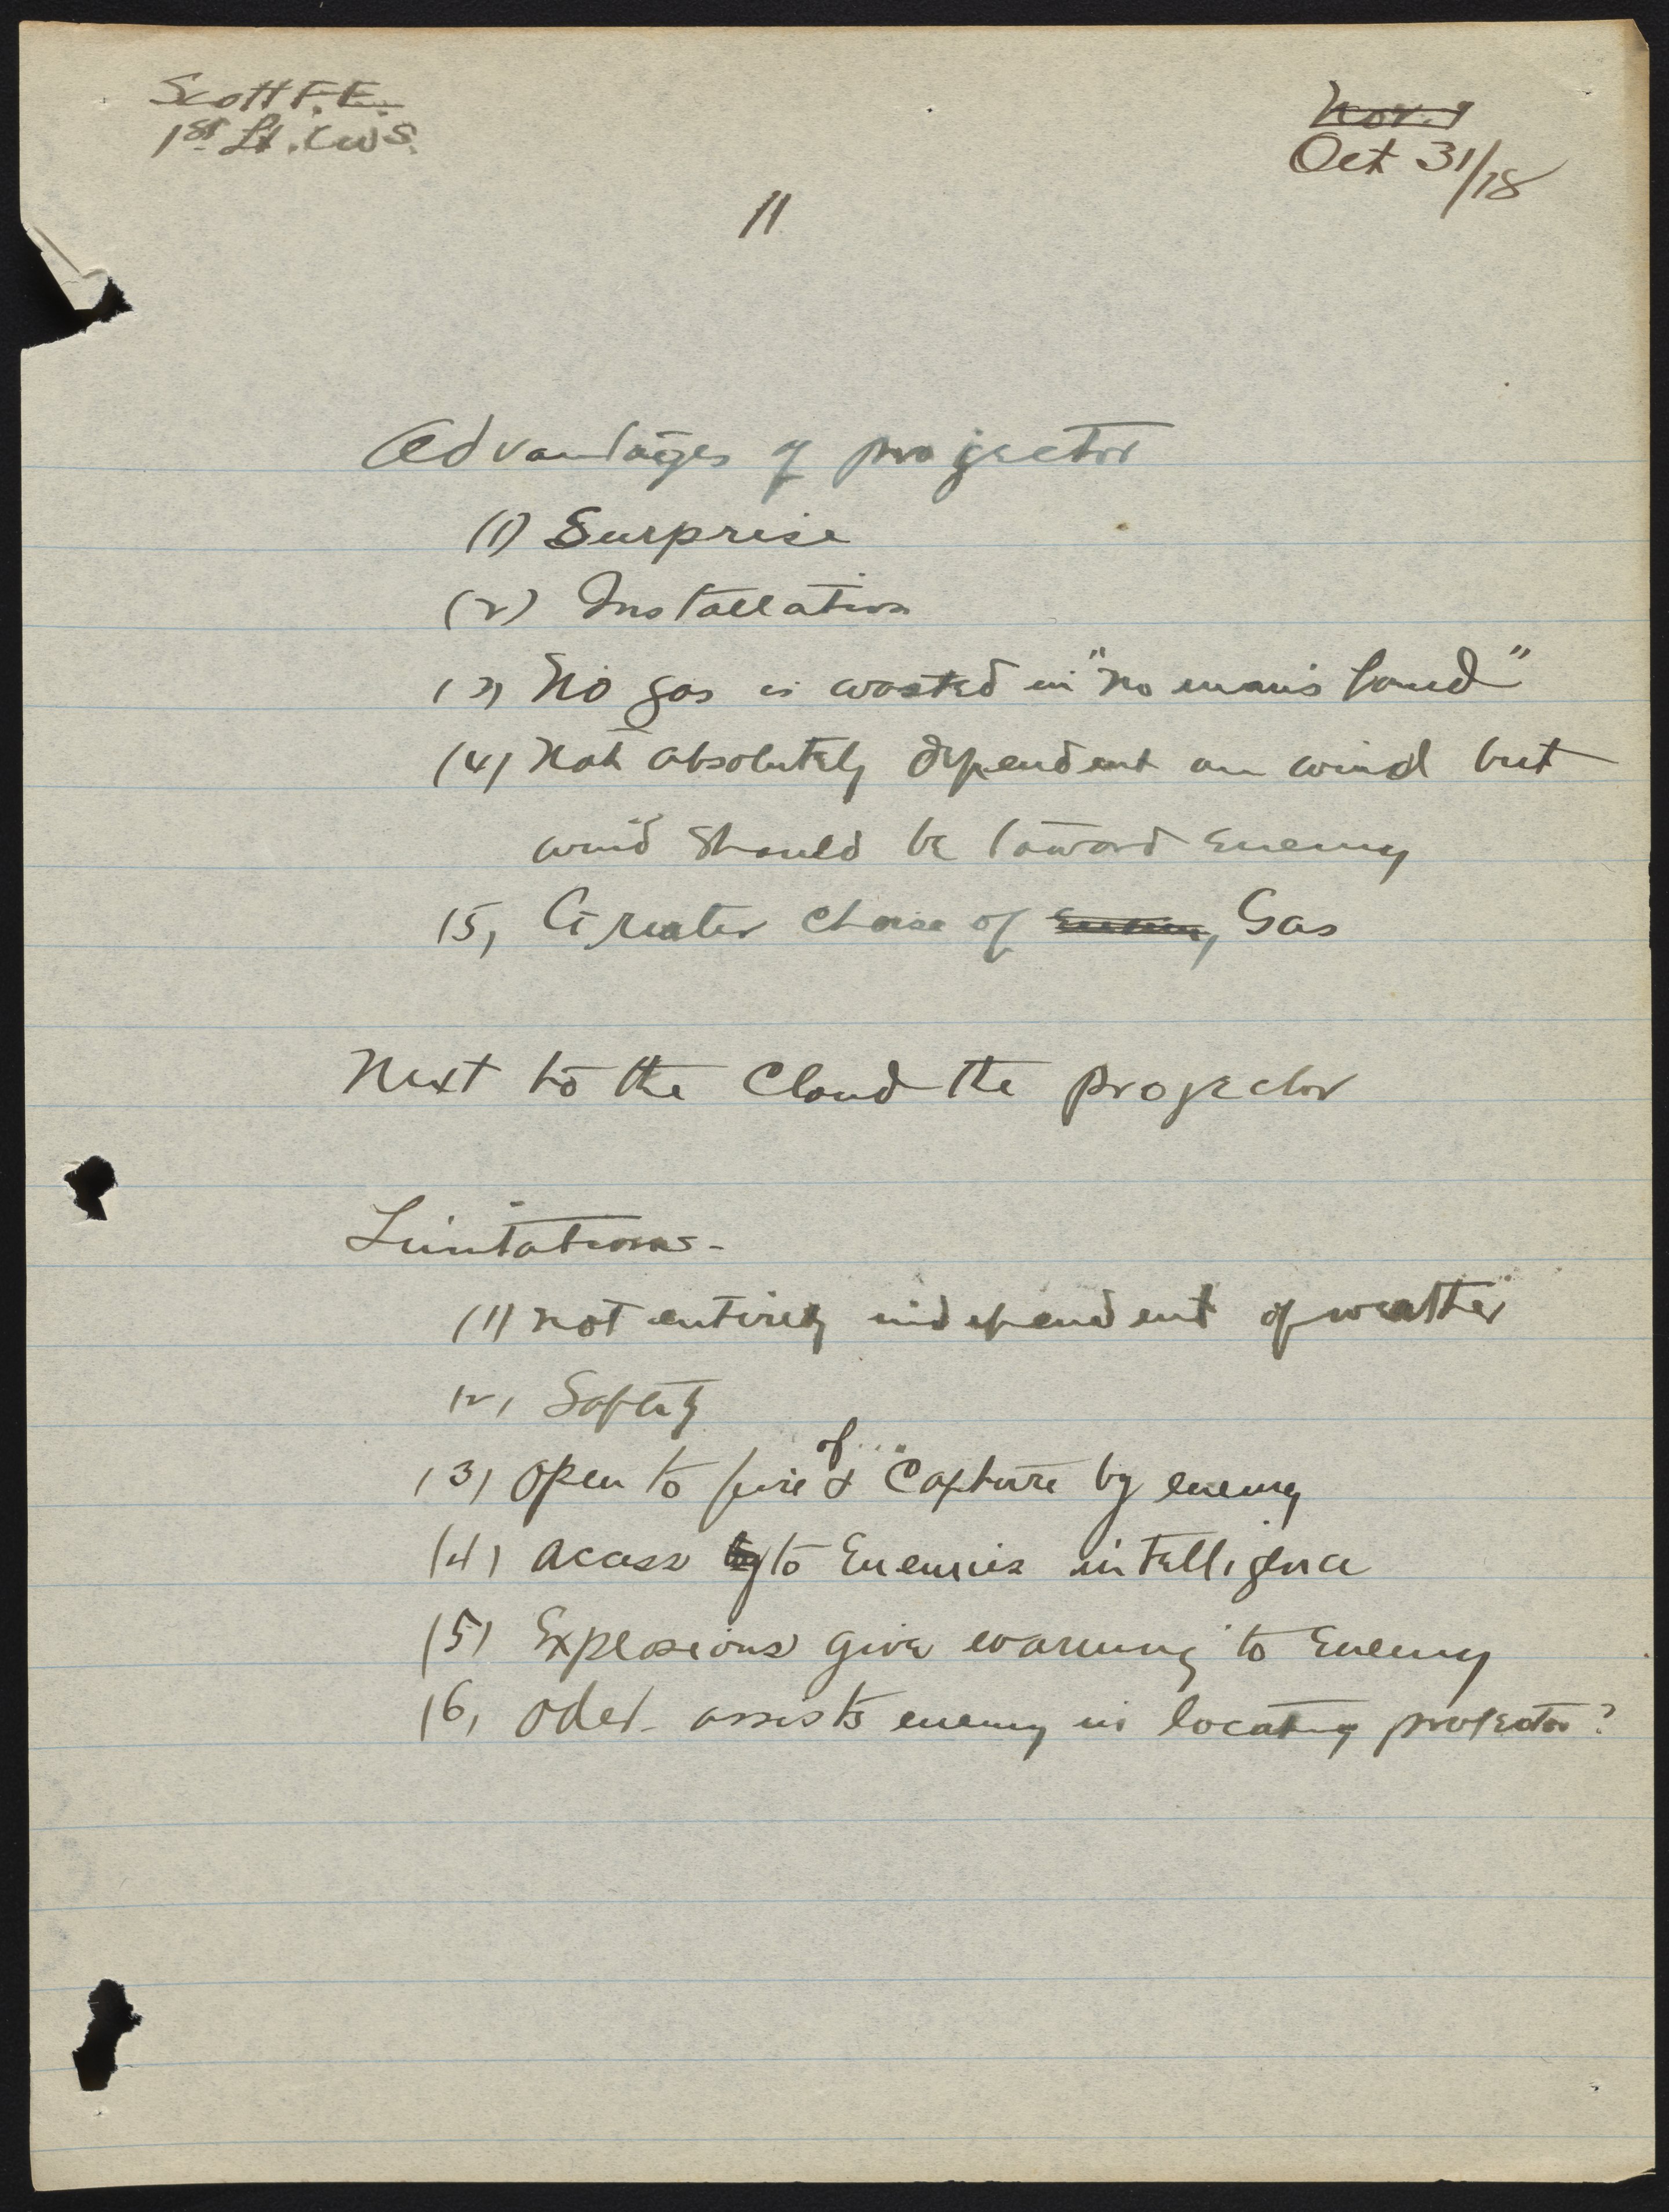 Scott F. E.
1st Lt. C W S.
Nov. 9
Oct 31/18
11
Advantages of projector
(1) Surprise
(2) Installation
(3) No gas is wasted in "no man's land"
(4) Not absolutely dependent on wind but
wind should be toward Enemy
(5) Greater choise of Gas
Next to the Cloud the projector
Limitations-
(1) not entirely independent of weather
(2) Safety
(3) open to fire of & Capture by enemy
(4) acess by to Enemies intelligence
(5) Explosions give warning to Enemy
(6) oder assists enemy in locating projector?